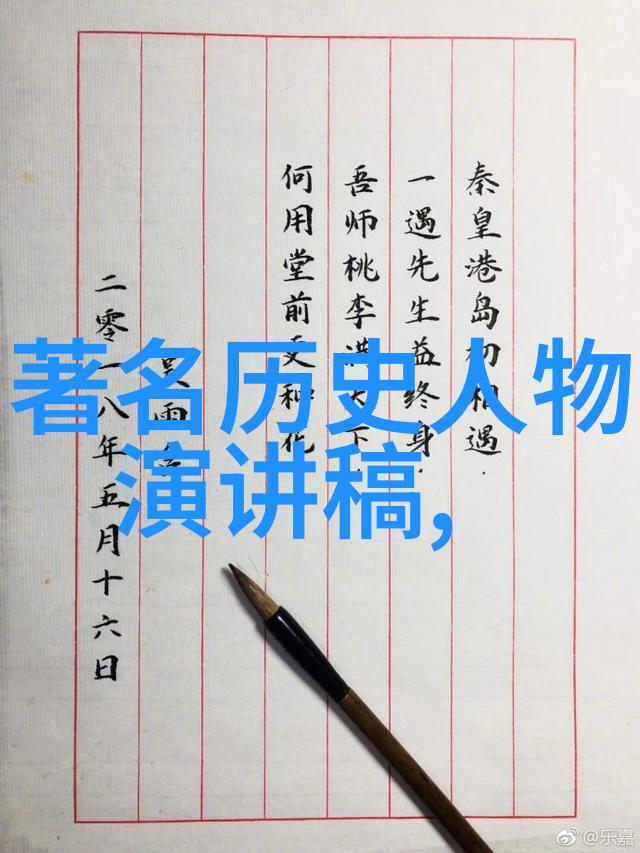 著名历史人物
演讲稿,
秦皇港岛初相遇.
一遇先生益终身.
吾师桃李满天下.
何用堂前更种花
吴雨
二零一八年五月十六日
@乐嘉